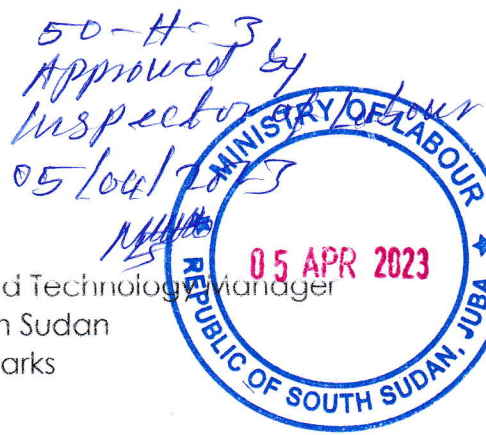 50-H-3
Approved by
Inspector of Labour
05/04/2023
MINISTRY OF LABOUR
05 APR 2023
REPUBLIC OF SOUTH SUDAN, JUBA
d Technology Manager
h Sudan
arks